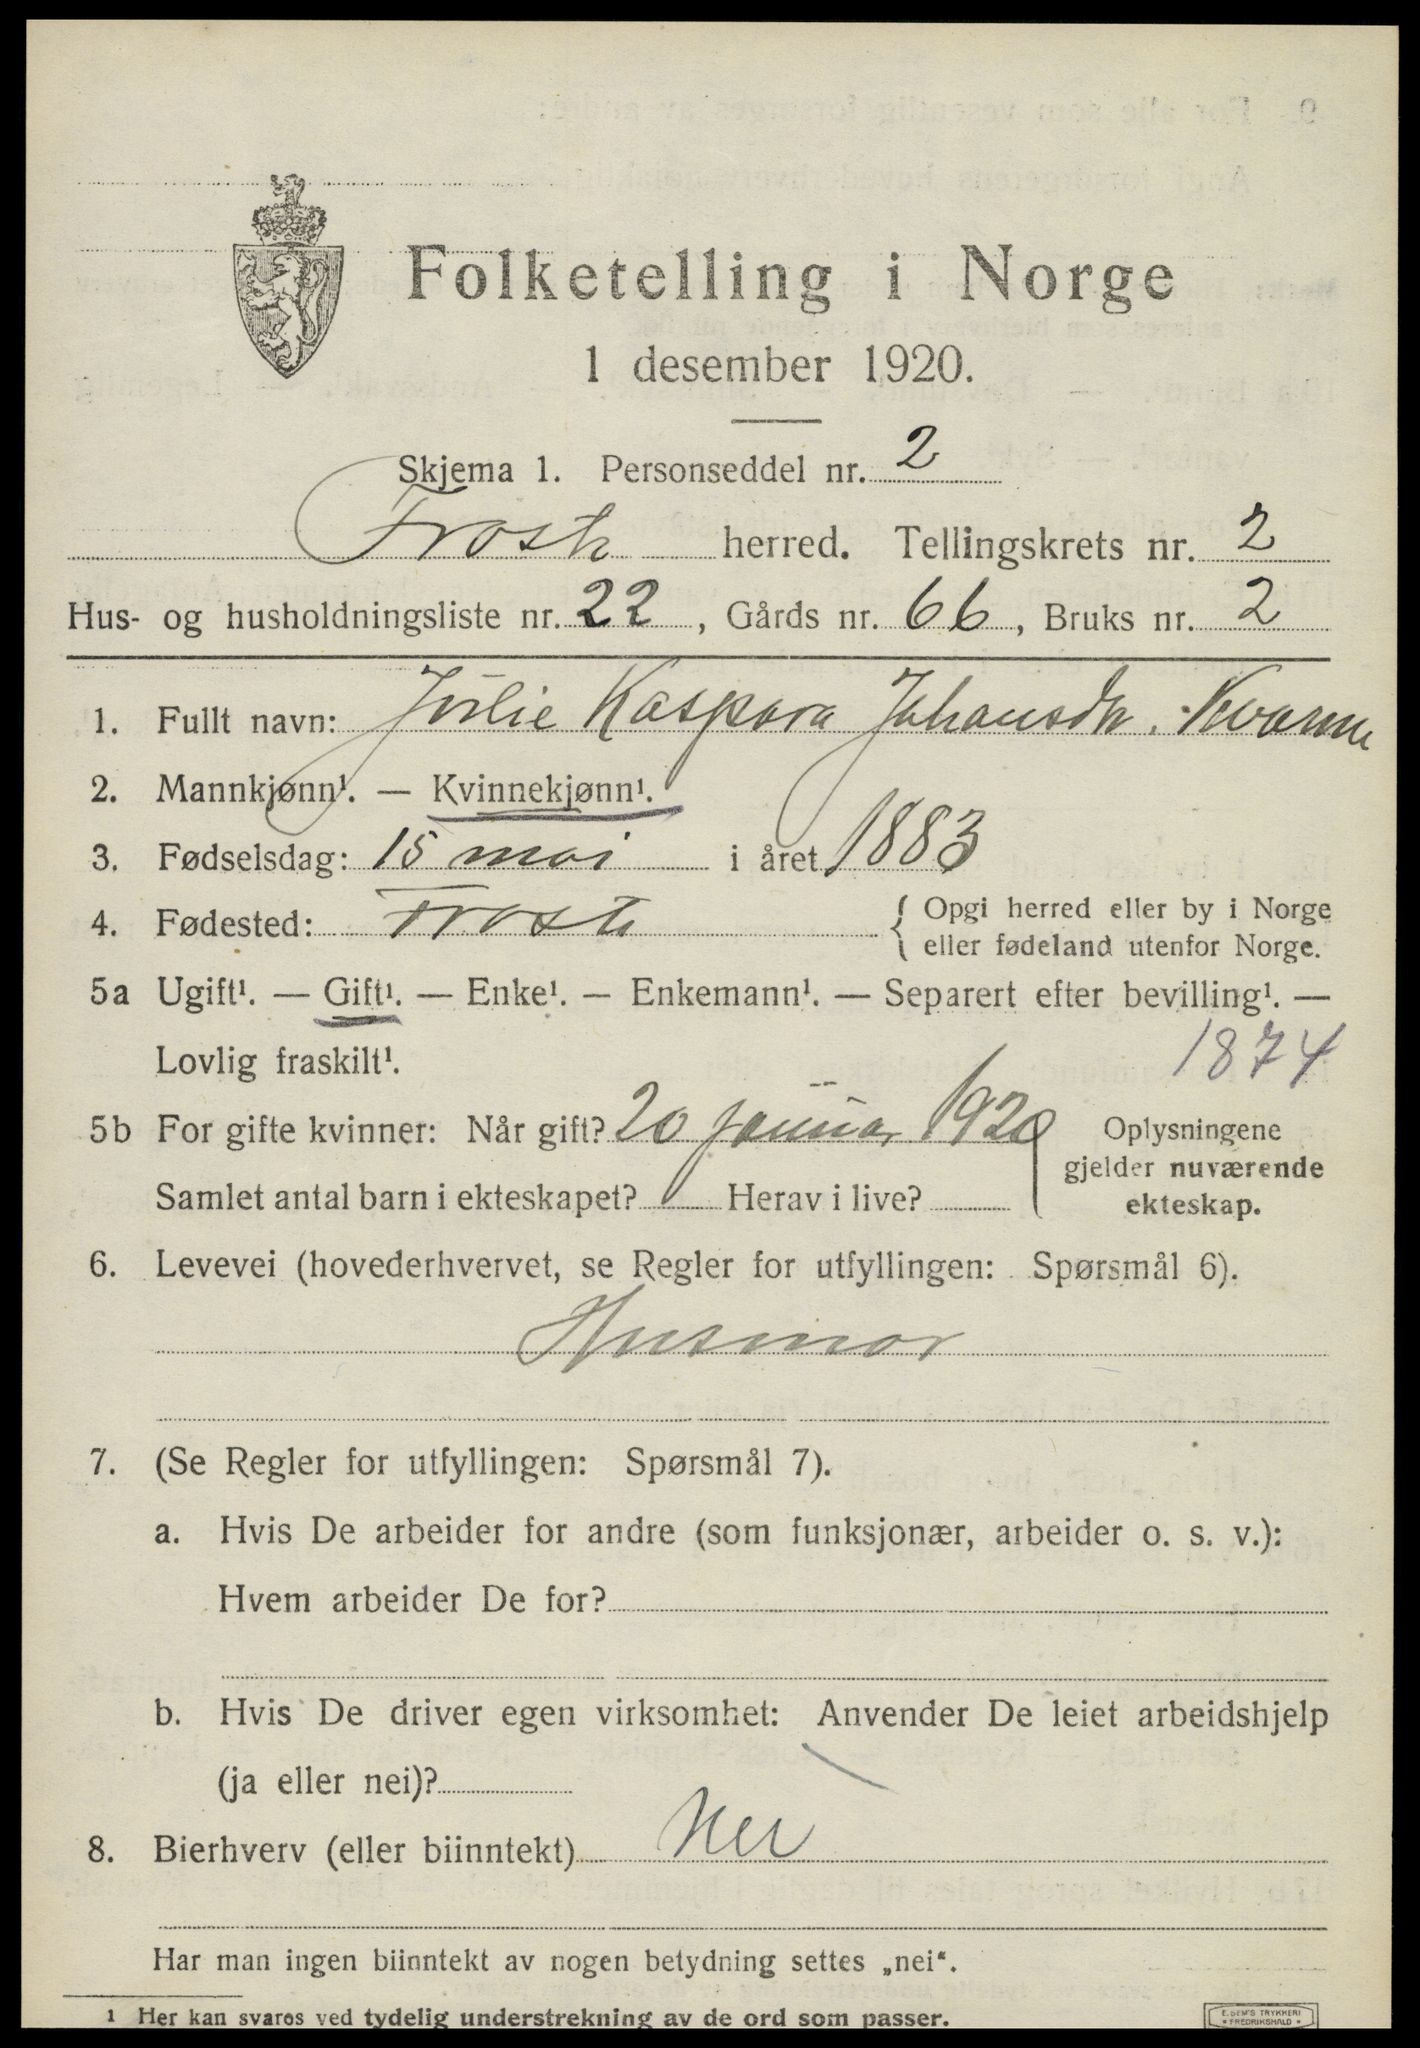 Folketelling i Norge
1 desember 1920.
Skjema 1. Personseddel nr. 2
Frosta herred. Tellingskrets nr. 2
Hus- og husholdningsliste nr. 22, Gårds nr. 66, Bruks nr. 2
1. Fullt navn: Julie Kaspara Johansdtr. Kvarme
2. Mannkjønn¹. — Kvinnekjønn¹.
3. Fødselsdag: 15 mai i året 1883
4. Fødested: Frosta { Opgi herred eller by i Norge
eller fødeland utenfor Norge.
5a Ugift¹. — Gift¹. — Enke¹. — Enkemann¹. — Separert efter bevilling¹. —
Lovlig fraskilt¹.
1874
5b For gifte kvinner: Når gift? 20 januar 1920
Samlet antal barn i ekteskapet? Herav i live?
Oplysningene
gjelder nuværende
ekteskap.
6. Levevei (hovederhvervet, se Regler for utfyllingen: Spørsmål 6).
Husmor
7. (Se Regler for utfyllingen: Spørsmål 7).
a. Hvis De arbeider for andre (som funksjonær, arbeider o. s. v.):
Hvem arbeider De for?
b. Hvis De driver egen virksomhet: Anvender De leiet arbeidshjelp
(ja eller nei)?
8. Bierhverv (eller biinntekt) Nei
Har man ingen biinntekt av nogen betydning settes „nei“.
1 Her kan svares ved tydelig understrekning av de ord som passer.
E. SEM'S TRYKKERI
* FREDRIKSHALD *